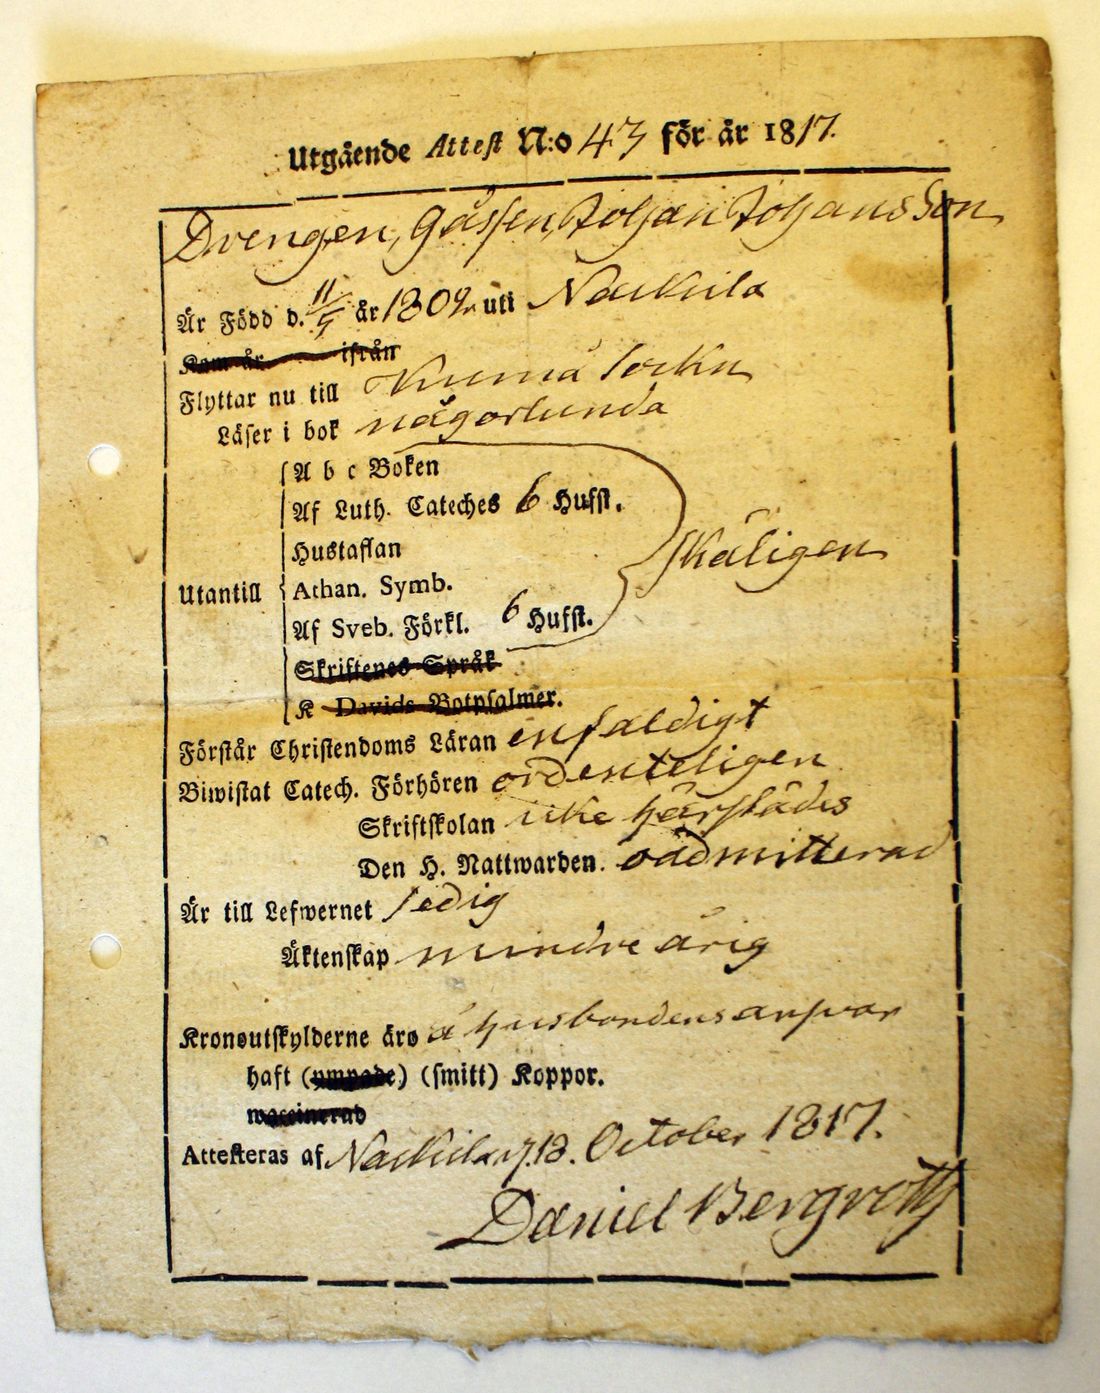 Utgående Attest N:o 43 för år 1817.
Drengen, Gåssen, Johan Johansson
Är Född d. 11/5 år 1802 uti Nackila
Kom år ifrån
Flyttar nu till Kumå Sockn
Läser i bok någorlunda
A b c Boken
Af Luth. Cateches 6 Hufst.
Hustaflan
Utantill Athan. Symb. skäligen
Af Sveb. Förkl. 6 Hufst.
Skriftenes Språk
K Davids Botpsalmer.
Förstår Christendoms Läran enfaldigt
Biwistat Catech. Förhören ordenteligen
Skriftskolan icke härstädes
Den H. Nattwarden. oadmitterad
Är till Lefwernet sedig
Äktenskap mindre årig
Kronoutskylderne äro å husbondens answar
haft (ympade) (smitt) Koppor.
waccinerad
Attesteras af Nackila d. 18. October 1817.
Daniel Bergroth